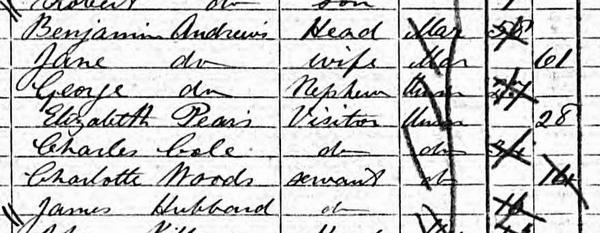 Robert do son
Benjamin Andrews Head Mar
Jane do wife Mar 61
George do Nephew Unm
Elizabeth Pears Visitor Unm 28
Charles Cole do do
Charlotte Woods servant do 14
James Hubbard do 16